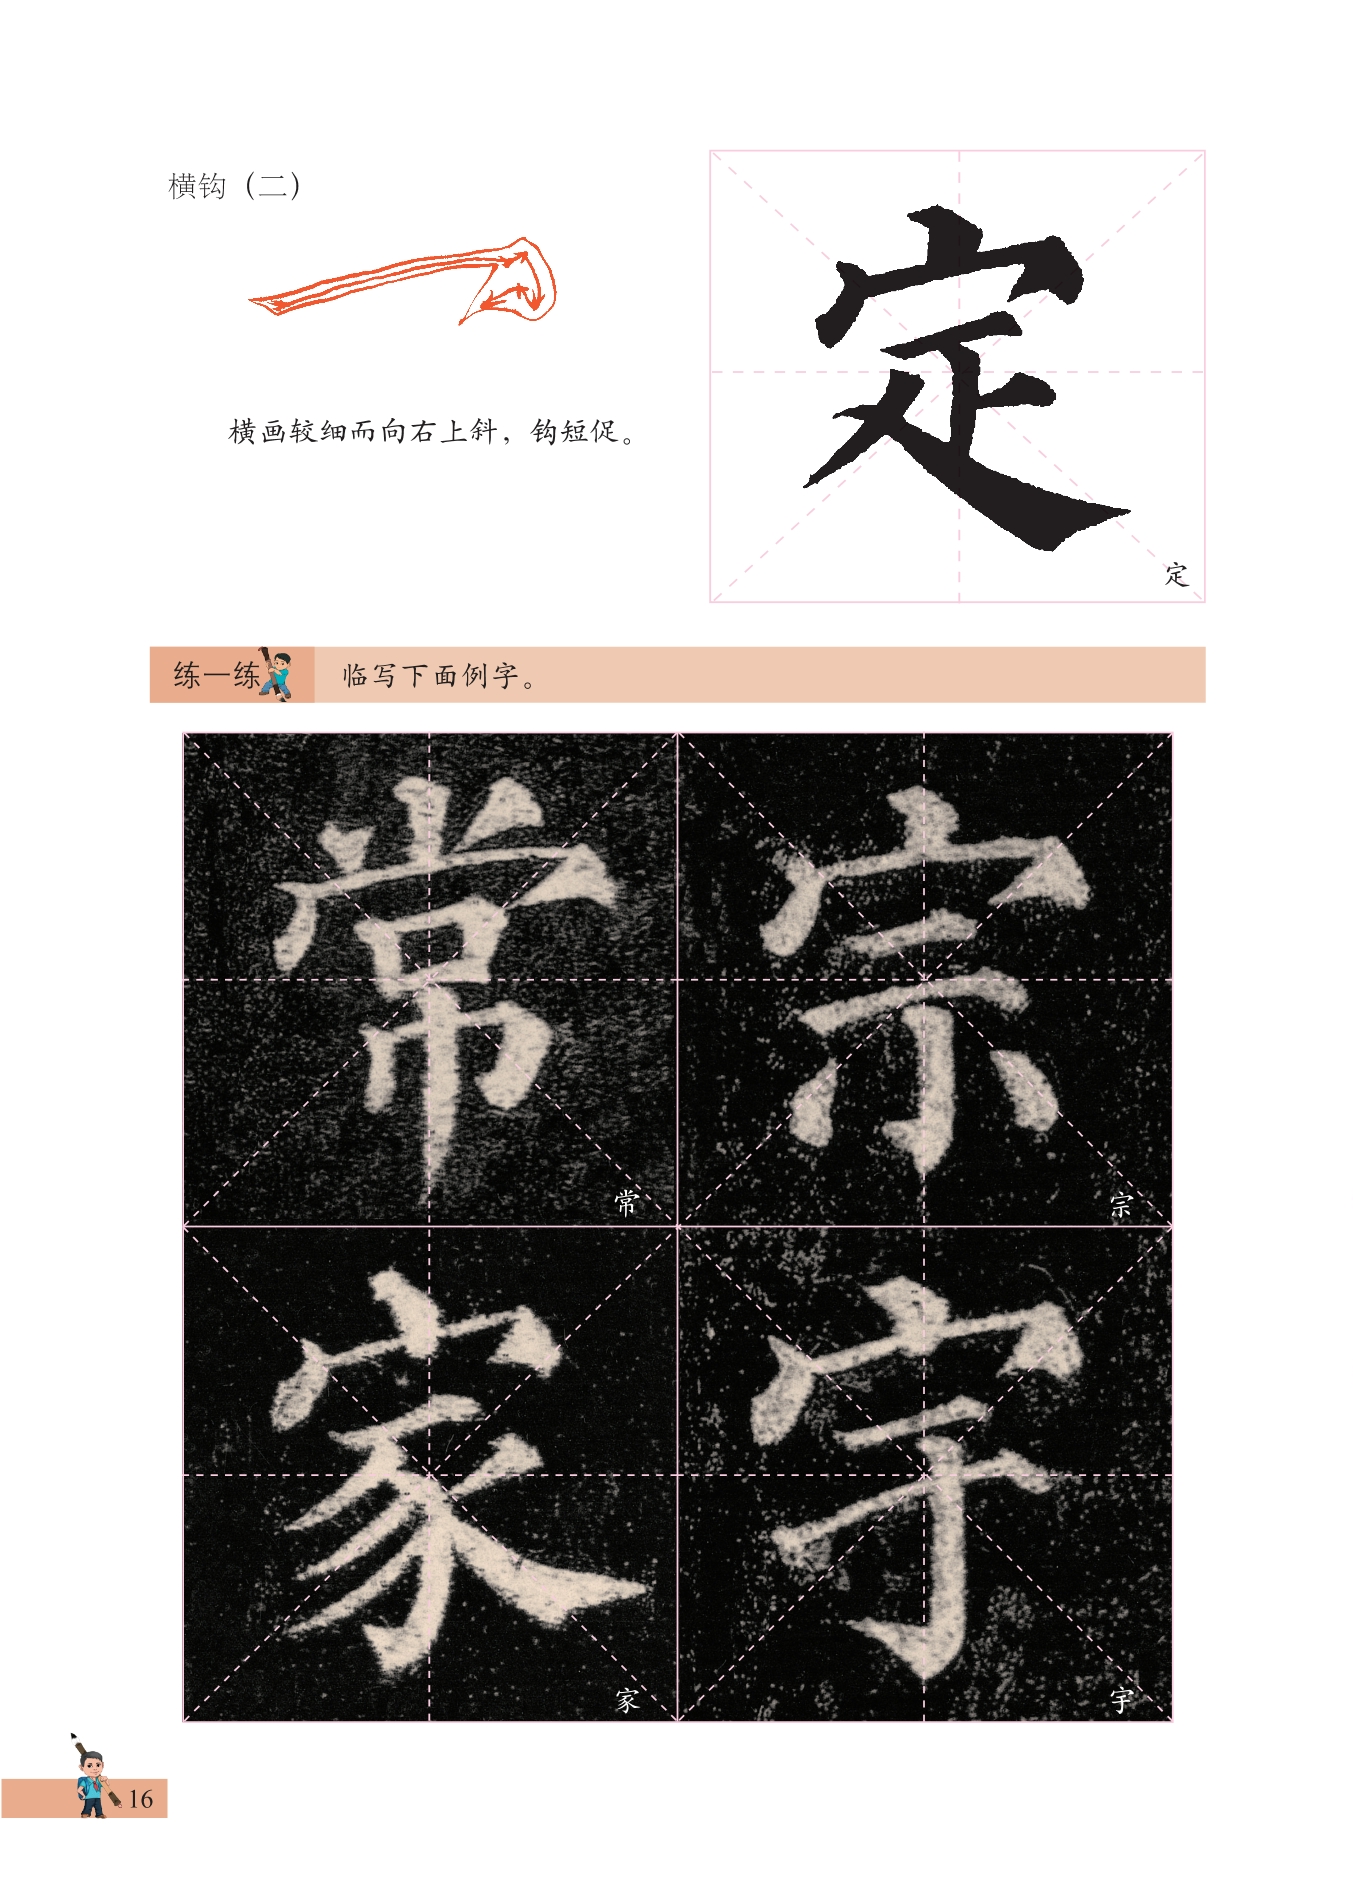 横钩（二）
横画较细而向右上斜，钩短促。
定
定
练一练
临写下面例字。
常
宗
常
宗
家
宇
家
宇
16